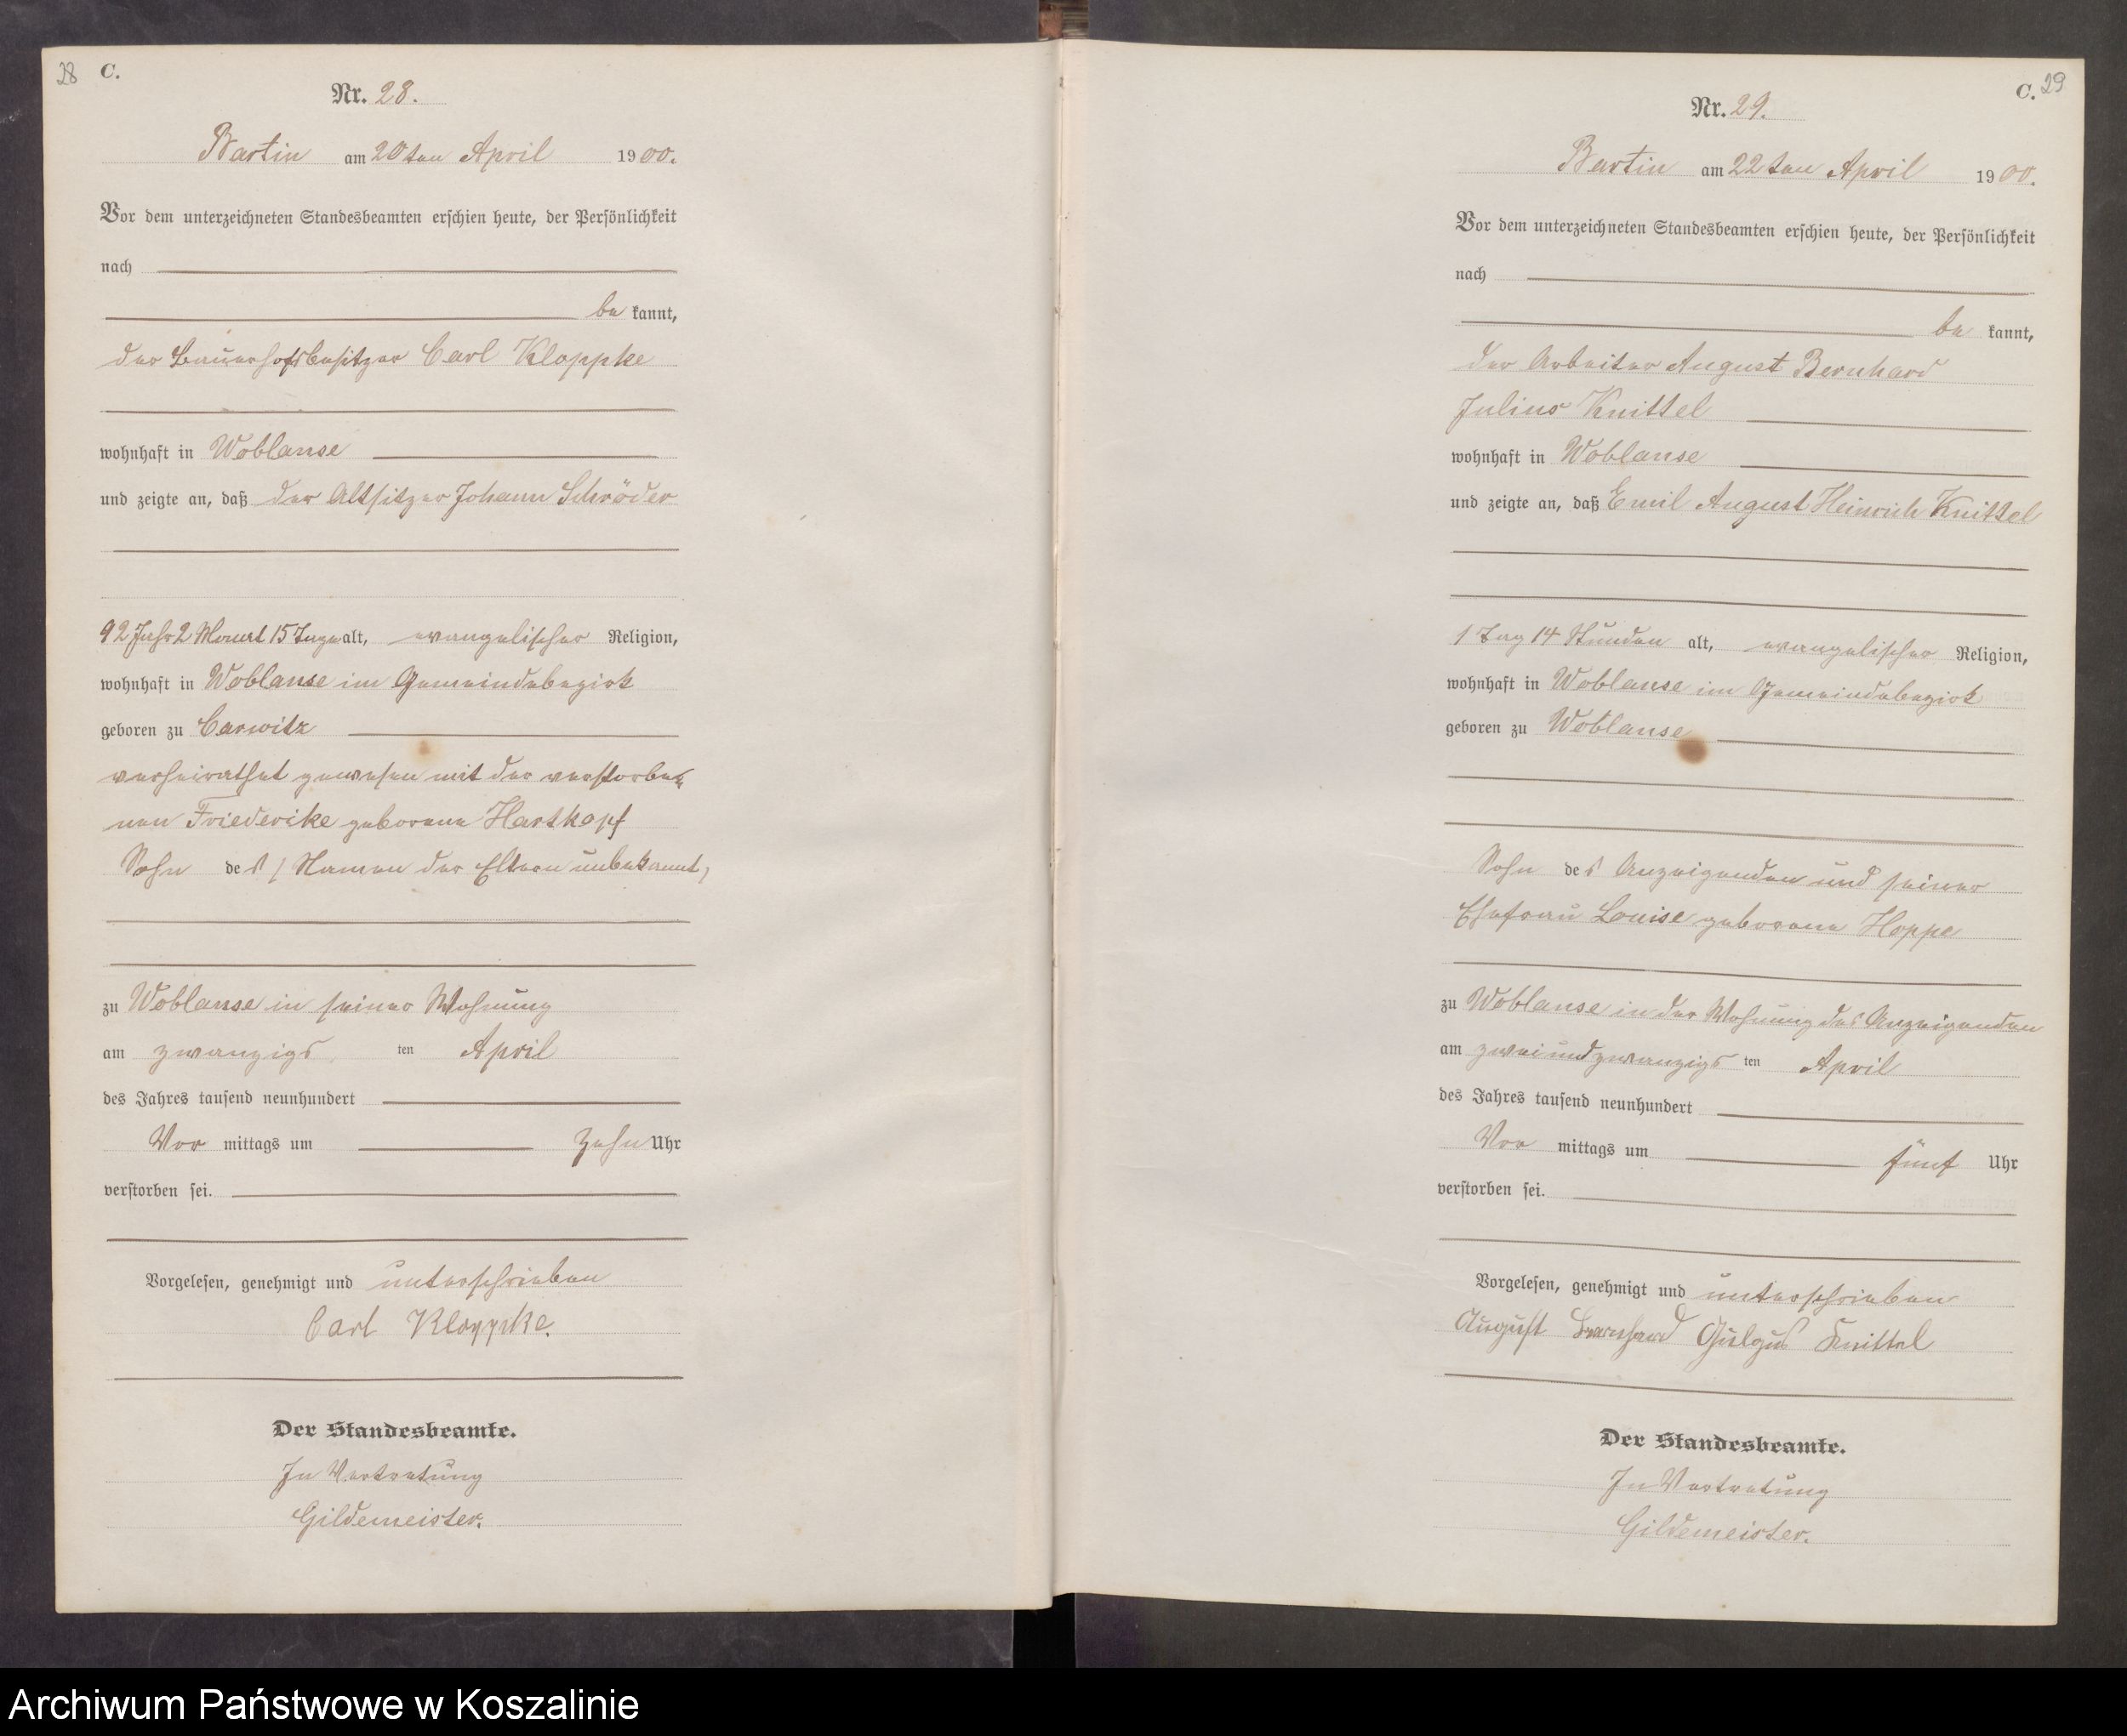 28 C.
Nr. 28.
Bartin am 20ten April 1900.
Vor dem unterzeichneten Standesbeamten erschien heute, der Persönlichkeit
nach
be kannt,
der Bauerhofsbesitzer Carl Kloppke
wohnhaft in Woblanse
und zeigte an, daß der Altsitzer Johann Schröder
92 Jahr 2 Monat 15 Tage alt, evangelischer Religion,
wohnhaft in Woblanse im Gemeindebezirk
geboren zu Carwitz
verheirathet gewesen mit der verstorbe-
nen Friederike geborene Hartkopf
Sohn des / Namen der Eltern unbekannt,
zu Woblanse in seiner Wohnung
am zwanzigs ten April
des Jahres tausend neunhundert
Vor mittags um zehn Uhr
verstorben sei.
Vorgelesen, genehmigt und unterschrieben
Carl Kloppke.
Der Standesbeamte.
In Vertretung
Gildemeister.
C. 29
Nr. 29.
Bartin am 22ten April 1900.
Vor dem unterzeichneten Standesbeamten erschien heute, der Persönlichkeit
nach
be kannt,
der Arbeiter August Bernhard
Julius Knittel
wohnhaft in Woblanse
und zeigte an, daß Emil August Heinrich Knittel
1 Tag 14 Stunden alt, evangelischer Religion,
wohnhaft in Woblanse im Gemeindebezirk
geboren zu Woblanse
Sohn des Anzeigenden und seiner
Ehefrau Louise geborene Hoppe
zu Woblanse in der Wohnung des Anzeigenden
am zweiundzwanzigs ten April
des Jahres tausend neunhundert
Vor mittags um fünf Uhr
verstorben sei.
Vorgelesen, genehmigt und unterschrieben
August Bernhard Gulgus Knittel
Der Standesbeamte.
In Vertretung
Gildemeister.
Archiwum Państwowe w Koszalinie